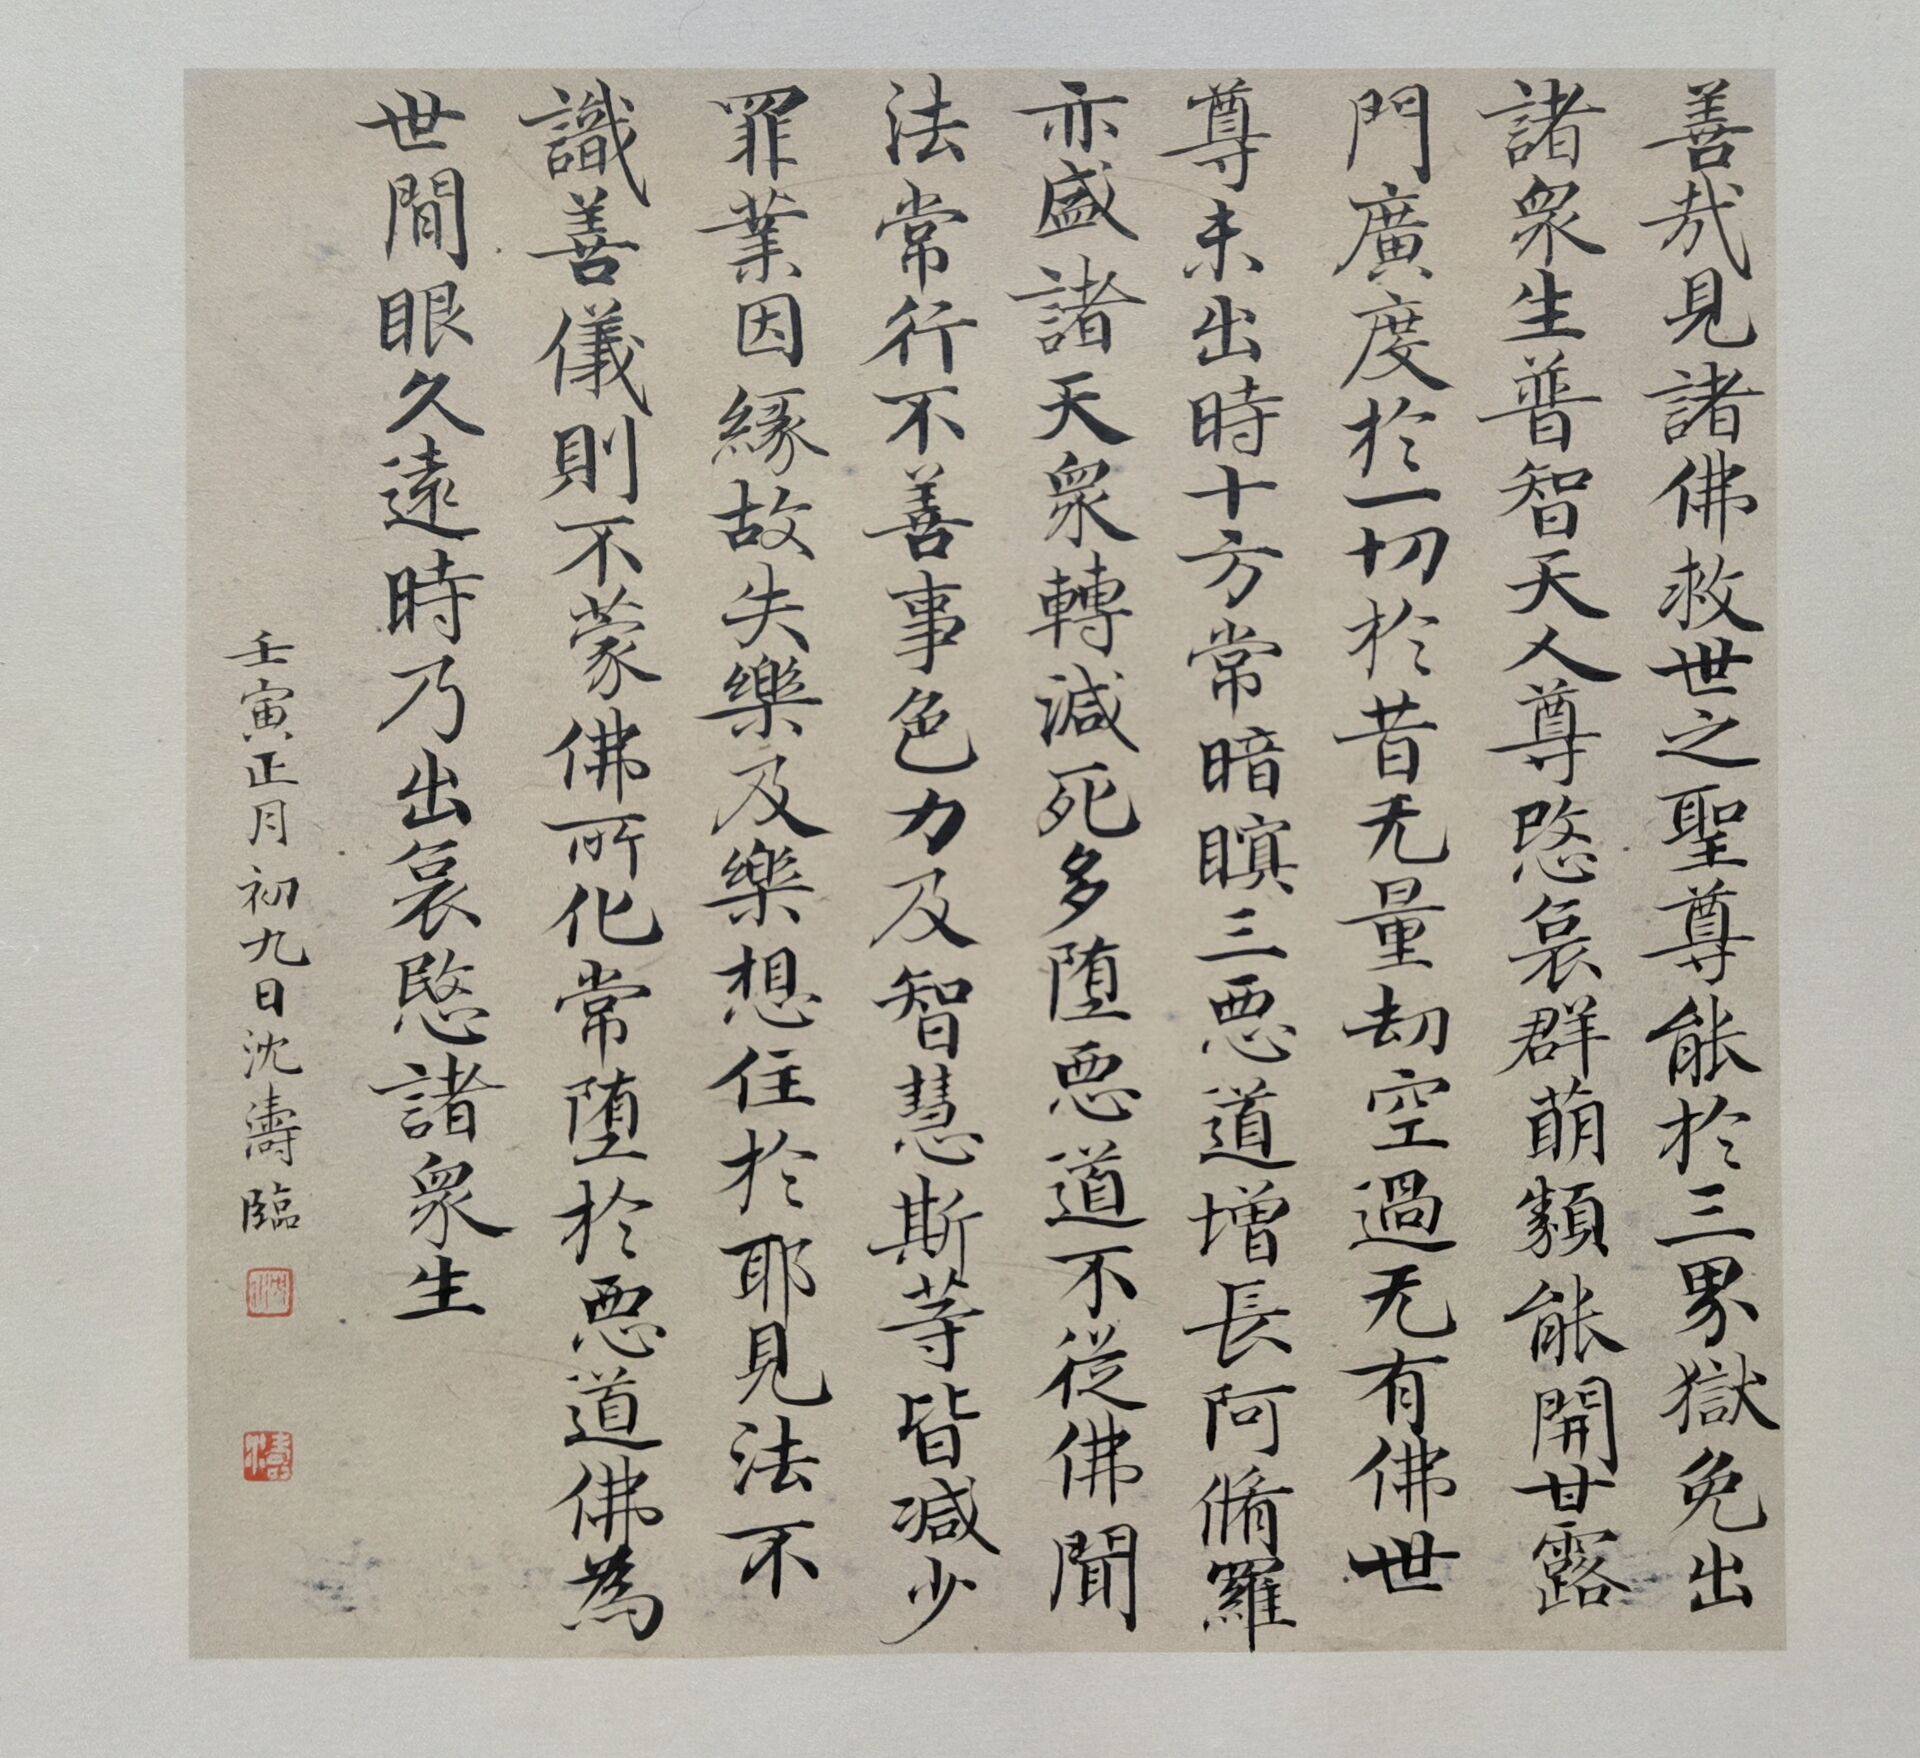 善哉見諸佛救世之聖尊能於三界獄免出
諸眾生普智天人尊愍哀群萌類能開甘露
門廣度於一切於昔无量劫空過无有佛世
尊未出時十方常暗瞑三惡道增長阿脩羅
亦盛諸天眾轉減死多墮惡道不從佛聞
法常行不善事色力及智慧斯等皆減少
罪業因緣故失樂及樂想住於耶見法不
識善儀則不蒙佛所化常墮於惡道佛為
世間眼久遠時乃出哀愍諸眾生
壬寅正月初九日沈濤臨